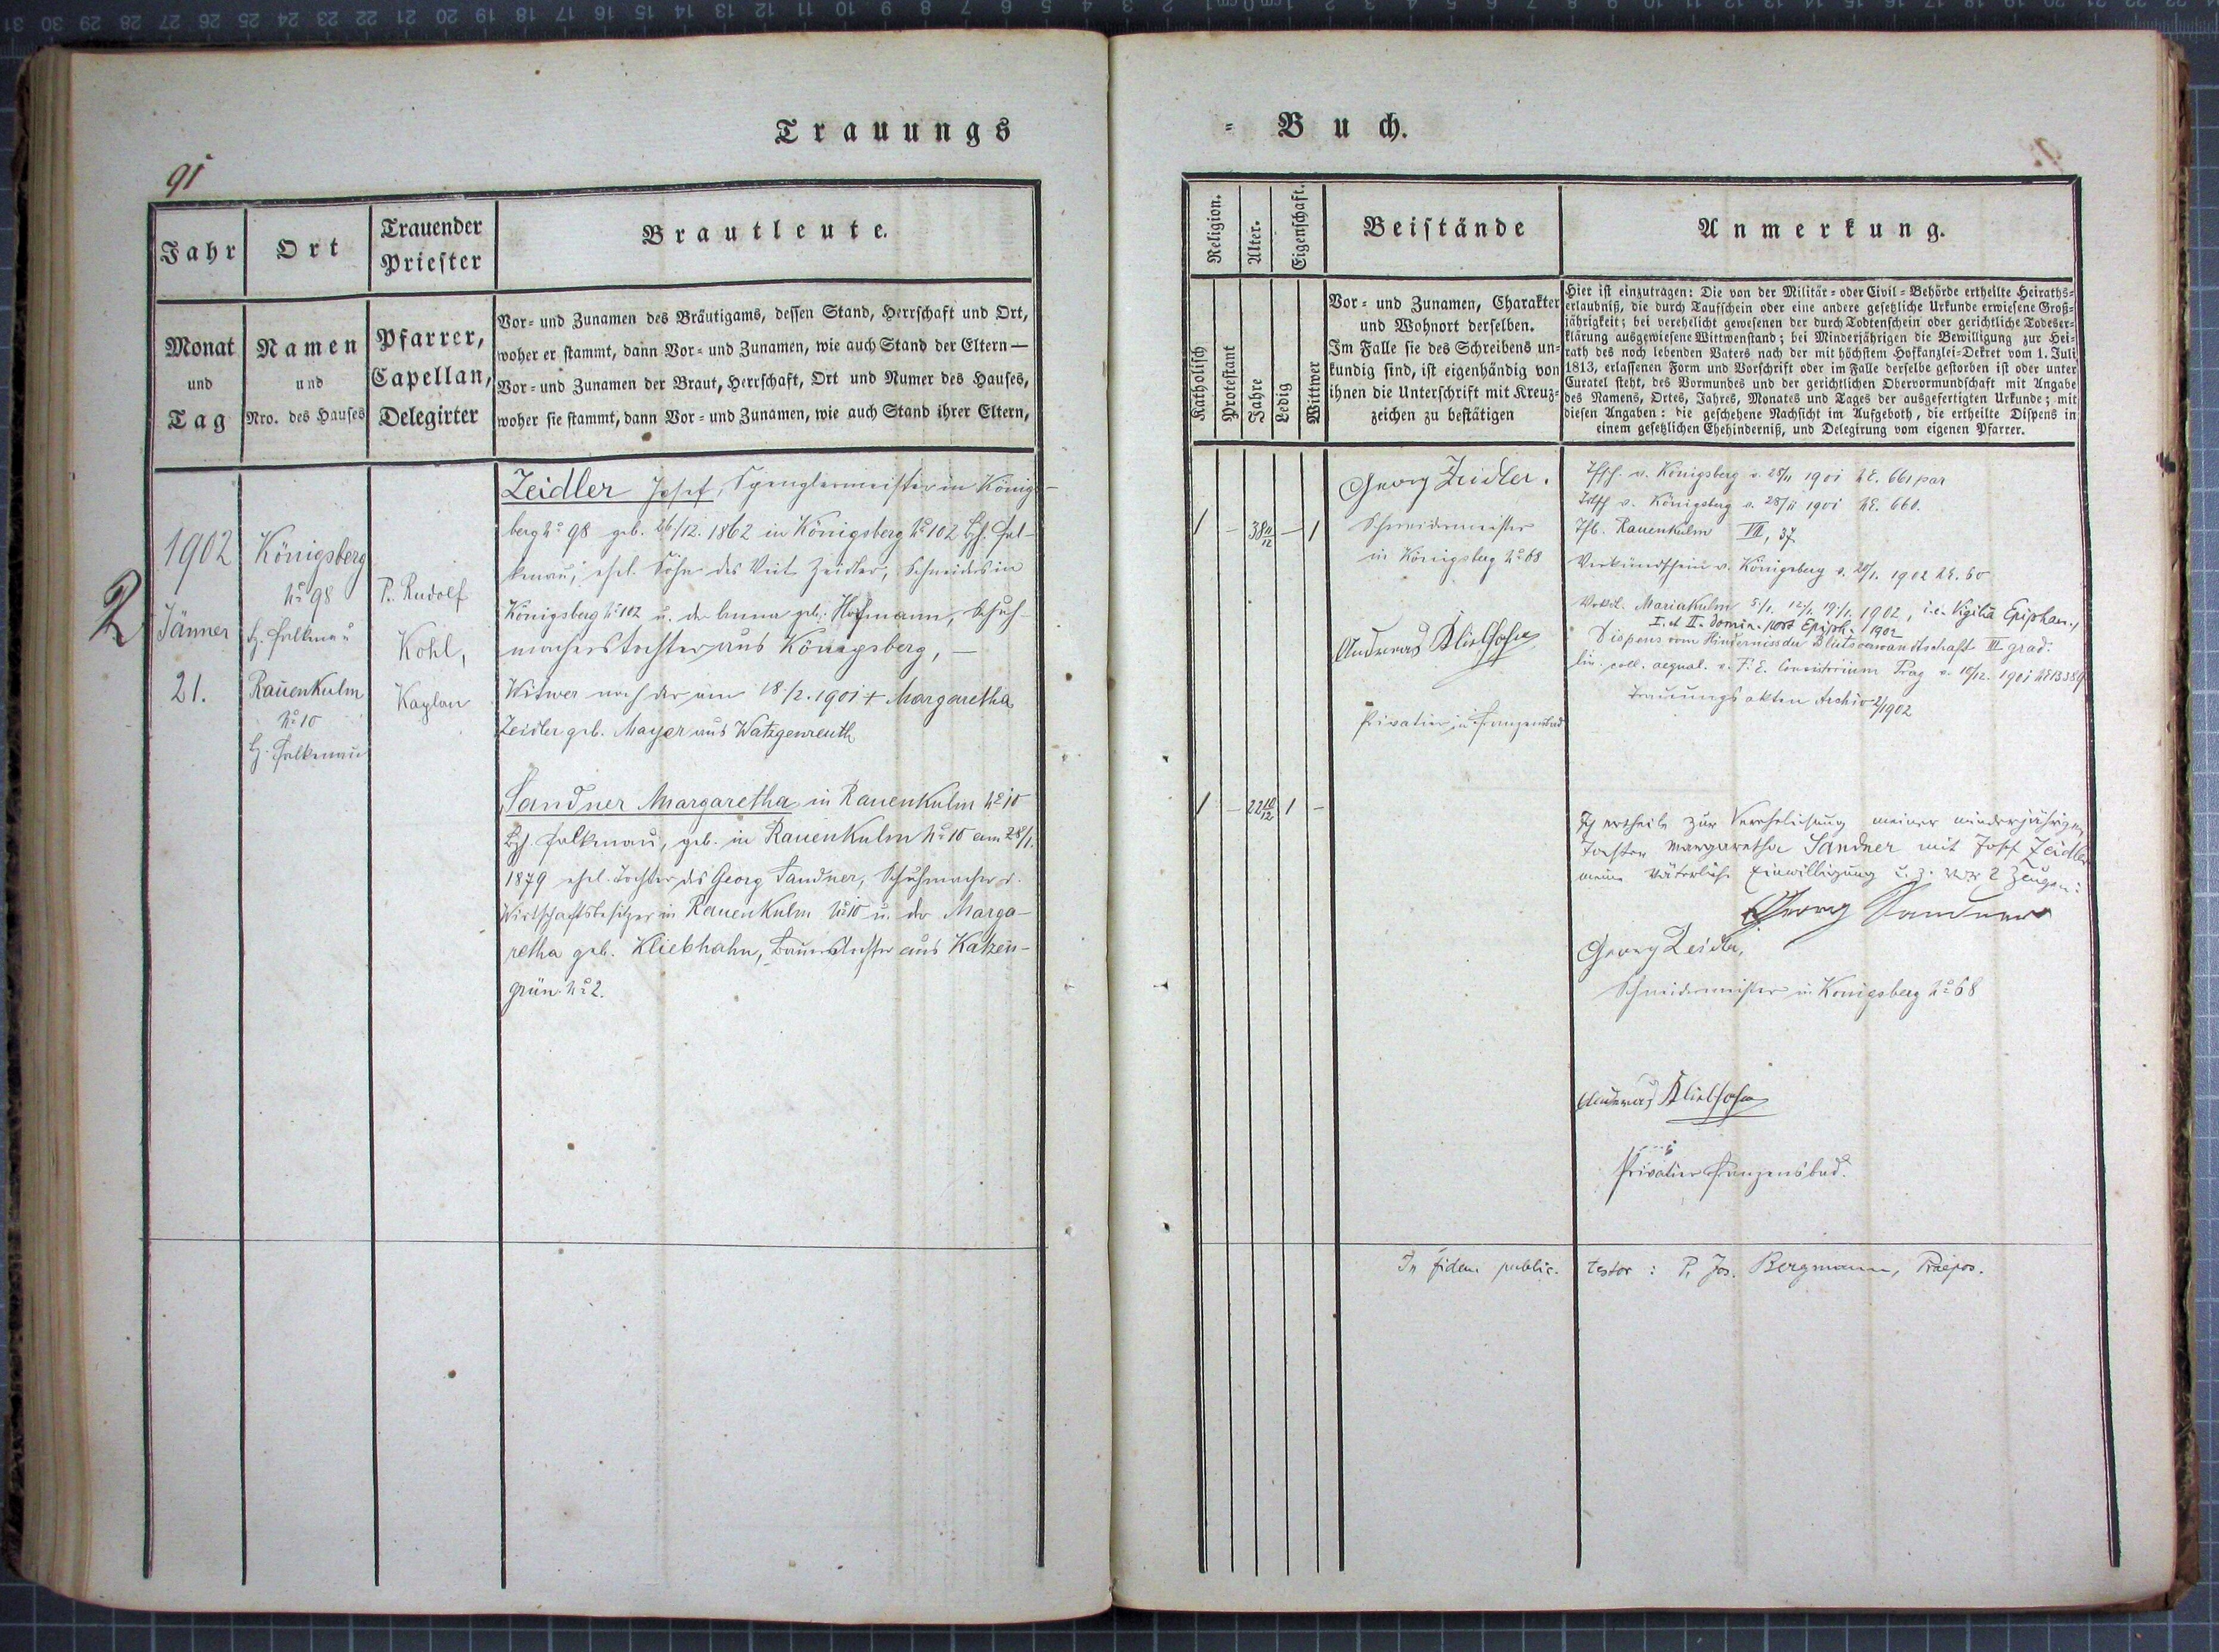 Trauungs
= Buch.
91
Jahr
Ort
Trauender
Priester
Brautleute.
Monat
und
Tag
Namen
und
Nro. des Hauses
Pfarrer,
Capellan,
Delegirter
Vor- und Zunamen des Bräutigams, dessen Stand, Herrschaft und Ort,
woher er stammt, dann Vor- und Zunamen, wie auch Stand der Eltern —
Vor- und Zunamen der Braut, Herrschaft, Ort und Numer des Hauses,
woher sie stammt, dann Vor- und Zunamen, wie auch Stand ihrer Eltern,
2
1902
Jänner
21.
Königsberg
No 98
Bz. Falkenau
Rauenkulm
No 10
Bz. Falkenau
P. Rudolf
Kohl,
Kaplan
Zeidler Josef, Spenglermeister in Königs-
berg No 98 geb. 26./12. 1862 in Königsberg No 102 Bz. Fal-
kenau, ehel. Sohn des Veit Zeidler, Schneiders in
Königsberg No 102 u. der Anna geb. Hofmann, Schuh-
macherstochter aus Königsberg, —
Witwer nach der am 18./2. 1901 + Margaretha
Zeidler geb. Mayer aus Watzgenreuth
Sandner Margaretha in Rauenkulm No 10
Bz. Falkenau, geb. in Rauenkulm No 10 am 28/1.
1879 ehel. Tochter des Georg Sandner, Schuhmacher u.
Wirtschaftsbesitzer in Rauenkulm No 10 u. der Marga-
retha geb. Kliebhahn, Bauerstochter aus Katzen-
grün No 2.
Religion.
Alter.
Eigenschaft.
Beistände
Anmerkung.
Katholisch
Protestant
Jahre
Ledig
Wittwer
Vor- und Zunamen, Charakter
und Wohnort derselben.
Im Falle sie des Schreibens un-
kundig sind, ist eigenhändig von
ihnen die Unterschrift mit Kreuz-
zeichen zu bestätigen
Hier ist einzutragen: Die von der Militär- oder Civil-Behörde ertheilte Heiraths-
erlaubniß, die durch Taufschein oder eine andere gesetzliche Urkunde erwiesene Groß-
jährigkeit; bei verehelicht gewesenen der durch Todtenschein oder gerichtliche Todeser-
klärung ausgewiesene Wittwenstand; bei Minderjährigen die Bewilligung zur Hei-
rath des noch lebenden Vaters nach der mit höchstem Hofkanzlei-Dekret vom 1. Juli
1813, erlassenen Form und Vorschrift oder im Falle derselbe gestorben ist oder unter
Curatel steht, des Vormundes und der gerichtlichen Obervormundschaft mit Angabe
des Namens, Ortes, Jahres, Monates und Tages der ausgefertigten Urkunde; mit
diesen Angaben: die geschehene Nachsicht im Aufgeboth, die ertheilte Dispens in
einem gesetzlichen Ehehinderniß, und Delegirung vom eigenen Pfarrer.
1 - 38 11/12 - 1
Georg Zeidler.
Schneidermeister
in Königsberg No 68
Andreas Kliebhahn
Privatier in Franzensbad
Tfsch. v. Königsberg v. 28/11 1901 NE. 661 par
Tdtsch v. Königsberg v. 28/11 1901 NE. 660.
Tfb. Rauenkulm VII, 37
Verkündschein v. Königsberg v. 20/1. 1902 NE. 60
Verkd. Mariakulm 5/1. 12/1. 19/1. 1902, i.e. Vigilia Epiphan.,
I. et II. domin. post Epiph. 1902
Dispens vom Hindernisse der Blutsverwandtschaft III grad.
lin. coll. aequal. v. F. E. Consistorium Prag v. 10/12. 1901 NE 13389
Trauungsakten Archiv 2/1902
1 - 22 10/12 1 -
Ich ertheile zur Verehelichung meiner minderjährigen
Tochter Margaretha Sandner mit Josef Zeidler
meine väterliche Einwilligung u. z. vor 2 Zeugen:
Georg Sandner
Georg Zeidler,
Schneidermeister in Königsberg No 68
Andreas Kliebhahn
Privatier Franzensbad.
In fidem public. testor : P. Jos. Bergmann, Praepos.